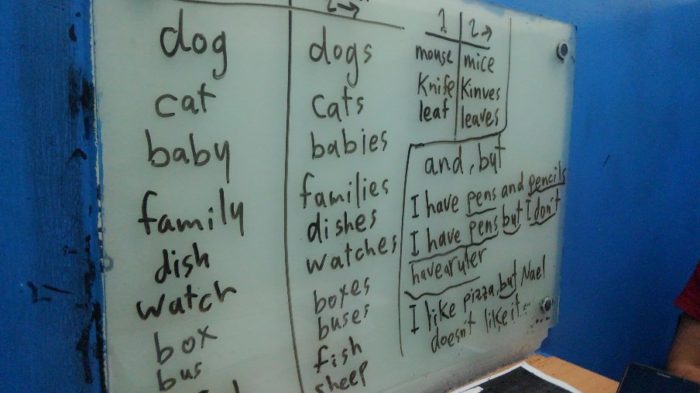 2→
dog dogs
cat cats
baby babies
family families
dish dishes
watch watches
box boxes
bus buses
fish
sheep
1 2→
mouse mice
Knife Kinves
leaf leaves
and, but
I have pens and pencils
I have pens but I don't
have a ruler
I like pizza, but Nael
doesn't like it.